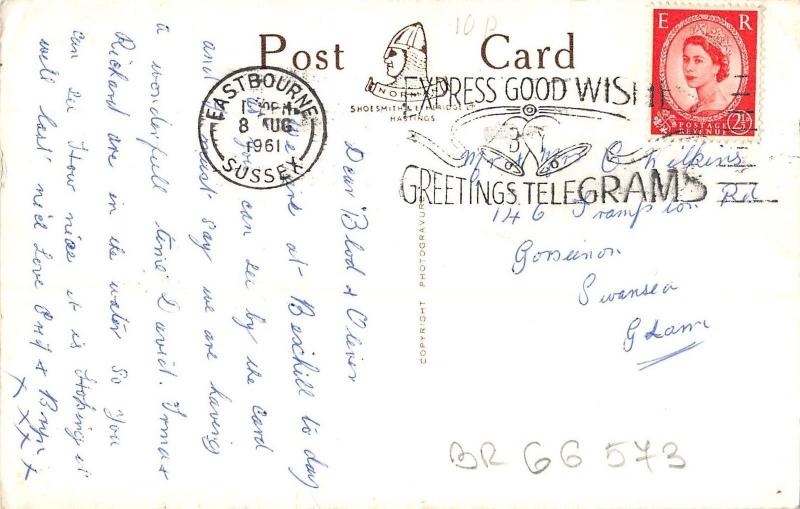 Post Card
NORMAN
SHOESMITH & ETHERIDGE LTD
HASTINGS
10p
E R
POSTAGE
REVENUE
2½D
EASTBOURNE
PM
8 AUG
1961
SUSSEX
EXPRESS GOOD WISHES
BY
GREETINGS TELEGRAMS
COPYRIGHT PHOTOGRAVURE
Dear Blod & Oliver
We are at Bexhill to day
as you can see by the card
and must say we are having
a wonderfull time David. Irma &
Richard are in the water so you
can see How nice it is Hoping it
will last nid Love & Bryn
X X X X
Mr & Mrs O Wilkins
146 Frampton Rd
Gorseinon
Swansea
Glam
BR 66 573